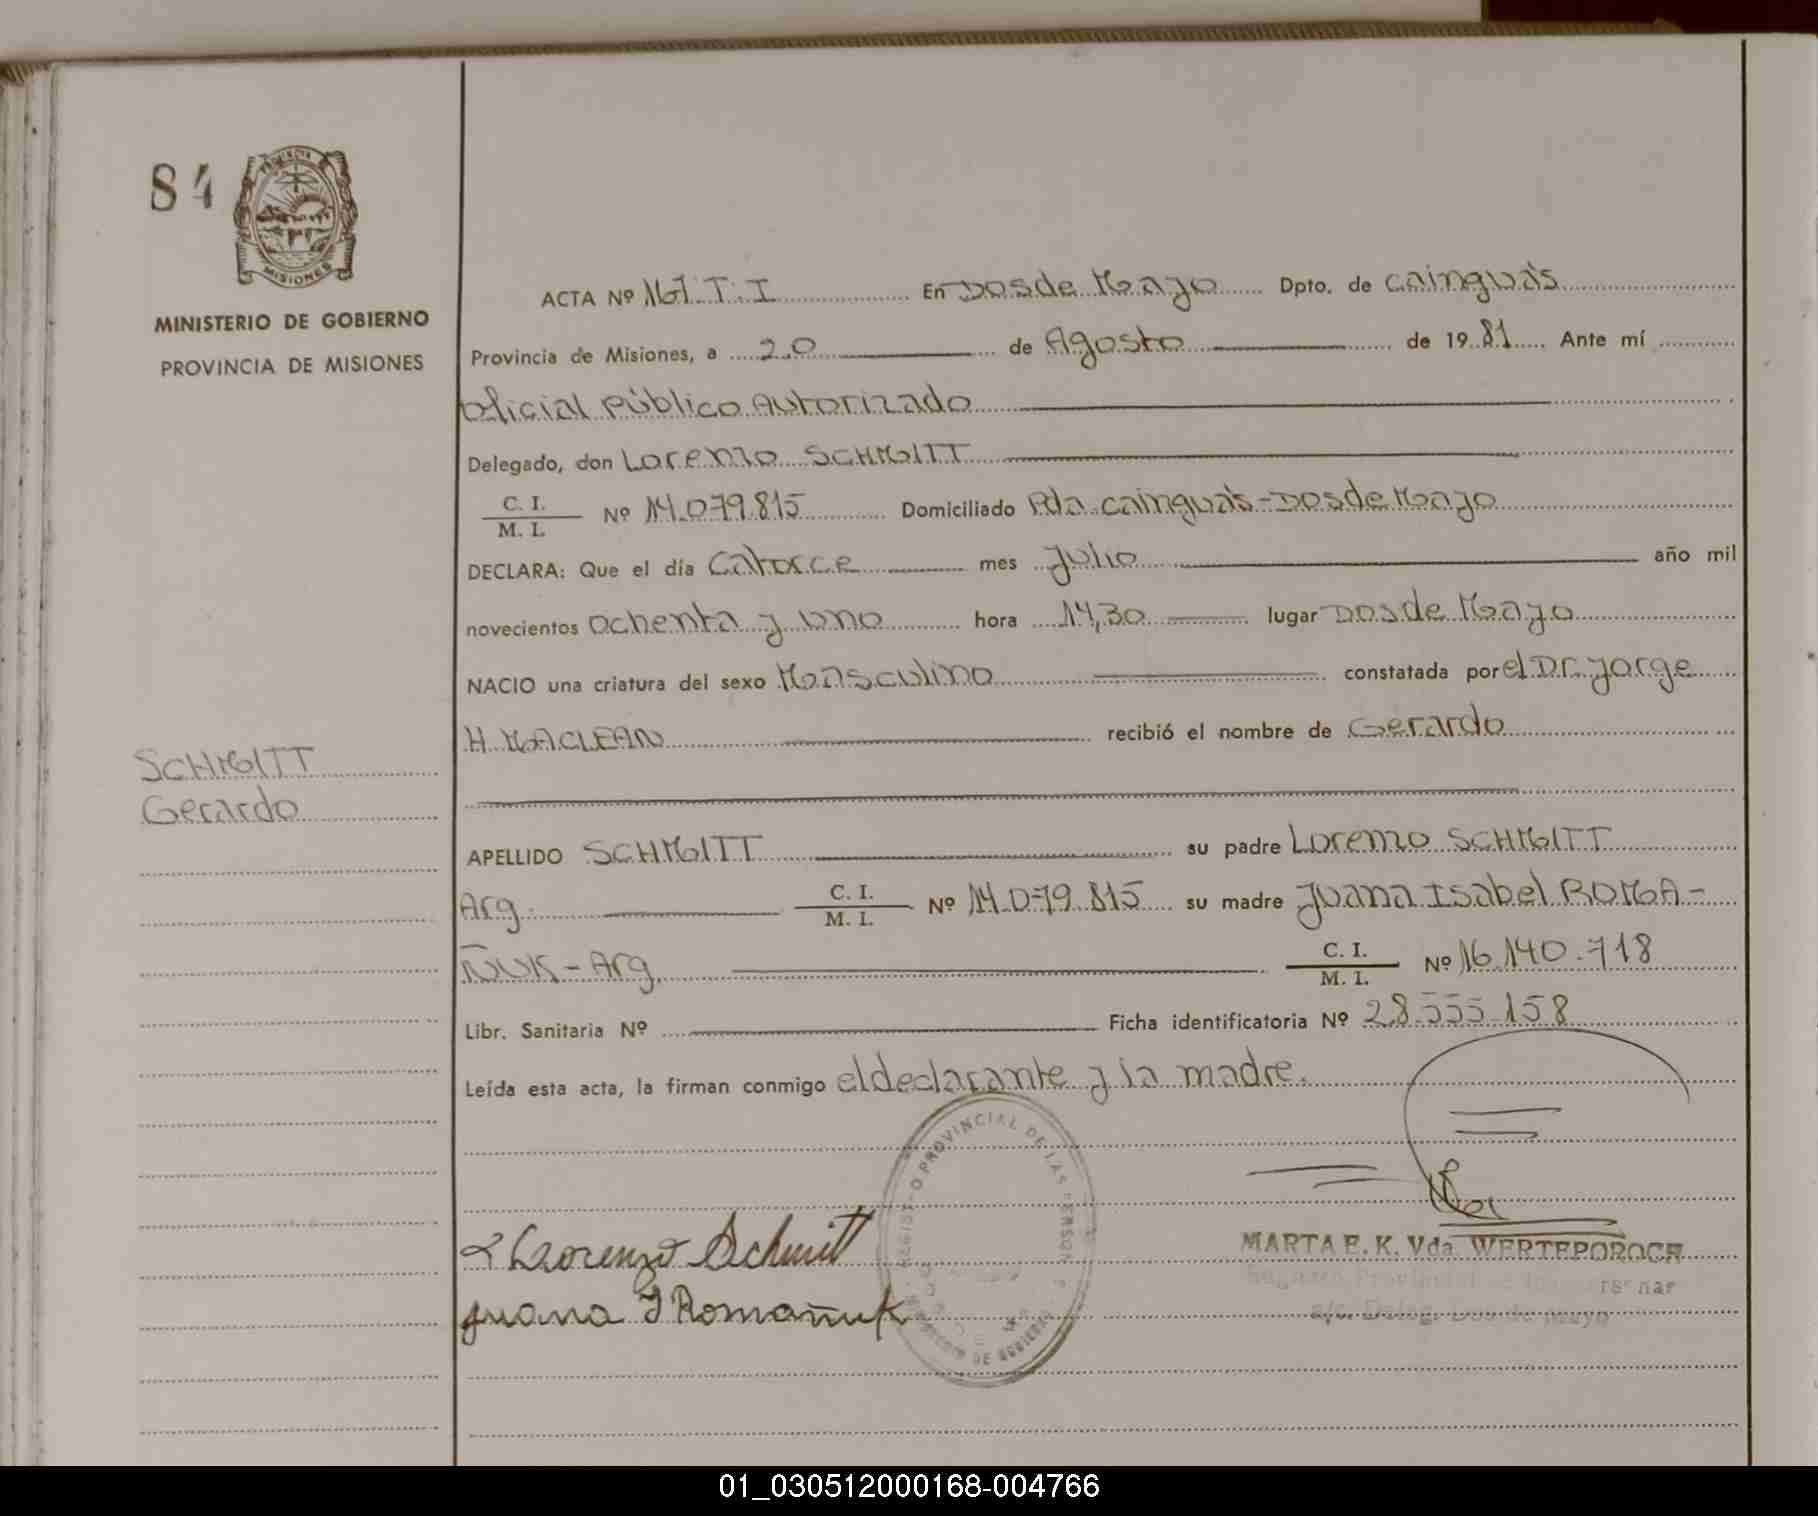 84
PROVINCIA
MISIONES
MINISTERIO DE GOBIERNO
PROVINCIA DE MISIONES
ACTA Nº 167.T.I En Dos de Mayo Dpto. de Cainguás
Provincia de Misiones, a 20 de Agosto de 19 81 Ante mí
Oficial Público Autorizado
Delegado, don Lorenzo SCHMITT
C. I.
M. I. Nº 14.079.815 Domiciliado Pda Cainguás - Dos de Mayo
DECLARA: Que el día Catorce mes Julio año mil
novecientos Ochenta y Uno hora 14,30 lugar Dos de Mayo
NACIO una criatura del sexo Masculino constatada por el Dr. Jorge
H. MACLEAN recibió el nombre de Gerardo
SCHMITT
Gerardo
APELLIDO SCHMITT su padre Lorenzo SCHMITT
Arg. C. I.
M. I. Nº 14.079.815 su madre Juana Isabel ROMA-
ÑUK - Arg. C. I.
M. I. Nº 16.140.718
Libr. Sanitaria Nº Ficha identificatoria Nº 28.555.158
Leída esta acta, la firman conmigo el declarante y la madre.
REGISTRO PROVINCIAL DE LAS PERSONAS
MINISTERIO DE GOBIERNO
Lorenzo Schmitt
Juana I Romañuk
MARTA E. K. Vda. WERTEPOROCH
a/c. Deleg. Dos de Mayo
01_030512000168-004766